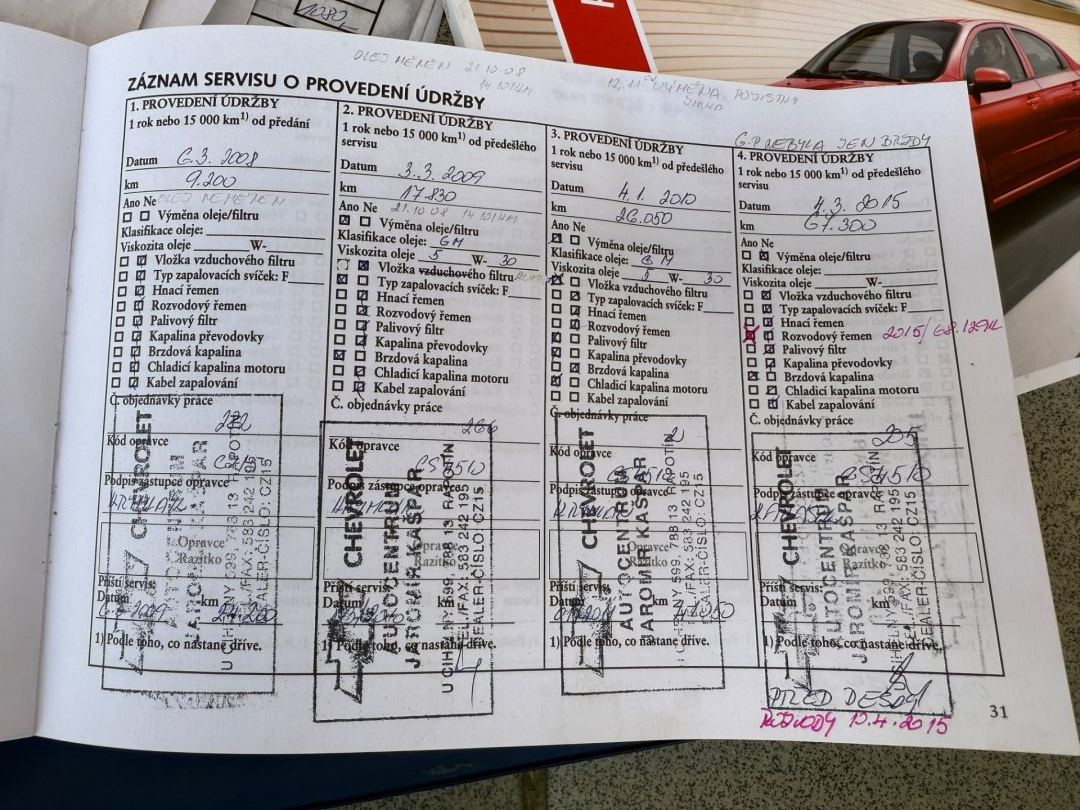 1080,
OLEJ MĚNĚN 21.10.08
14.101KM
ZÁZNAM SERVISU O PROVEDENÍ ÚDRŽBY
VÝMĚNA POJISTKY
1. PROVEDENÍ ÚDRŽBY
1 rok nebo 15 000 km¹⁾ od předání
Datum 6.3. 2008
km 9.200
OLEJ NEMĚNĚN
Ano Ne
Výměna oleje/filtru
Klasifikace oleje:
Viskozita oleje W-
Vložka vzduchového filtru
Typ zapalovacích svíček: F
Hnací řemen
Rozvodový řemen
Palivový filtr
Kapalina převodovky
Brzdová kapalina
Chladicí kapalina motoru
Kabel zapalování
Č. objednávky práce
272
Kód opravce
Podpis zástupce opravce
Opravce
Razítko
CHEVROLET
JAROMÍR KAŠPAR
U CIHELNY 599, 788 13 RAPOTÍN
TEL./FAX: 583 242 195
DEALER-ČÍSLO: CZ15
Příští servis:
Datum 6.3.2009 km 24.200
1) Podle toho, co nastane dříve.
2. PROVEDENÍ ÚDRŽBY
1 rok nebo 15 000 km¹⁾ od předešlého
servisu
Datum 3.3. 2009
km 17.830
Ano Ne 21.10.08 14.101KM
Výměna oleje/filtru
Klasifikace oleje: GM
Viskozita oleje 5 W- 30
Vložka vzduchového filtru
Typ zapalovacích svíček: F
Hnací řemen
Rozvodový řemen
Palivový filtr
Kapalina převodovky
Brzdová kapalina
Chladicí kapalina motoru
Kabel zapalování
Č. objednávky práce
266
Kód opravce
CS4510
Podpis zástupce opravce
Opravce
Razítko
CHEVROLET
AUTOCENTRUM
JAROMÍR KAŠPAR
U CIHELNY 599, 788 13 RAPOTÍN
TEL./FAX: 583 242 195
DEALER-ČÍSLO: CZ15
Příští servis:
Datum km
1) Podle toho, co nastane dříve.
3. PROVEDENÍ ÚDRŽBY
1 rok nebo 15 000 km¹⁾ od předešlého
servisu
Datum 4.1. 2010
km 26.050
Ano Ne
Výměna oleje/filtru
Klasifikace oleje: GM
Viskozita oleje 5 W- 30
Vložka vzduchového filtru
Typ zapalovacích svíček: F
Hnací řemen
Rozvodový řemen
Palivový filtr
Kapalina převodovky
Brzdová kapalina
Chladicí kapalina motoru
Kabel zapalování
Č. objednávky práce
2
Kód opravce
CS4510
Podpis zástupce opravce
Opravce
Razítko
CHEVROLET
AUTOCENTRUM
JAROMÍR KAŠPAR
U CIHELNY 599, 788 13 RAPOTÍN
TEL./FAX: 583 242 195
DEALER-ČÍSLO: CZ15
Příští servis:
Datum km
1) Podle toho, co nastane dříve.
G.P NEBYLA JEN BRZDY
4. PROVEDENÍ ÚDRŽBY
1 rok nebo 15 000 km¹⁾ od předešlého
servisu
Datum 4.3. 2015
km 67.300
Ano Ne
Výměna oleje/filtru
Klasifikace oleje:
Viskozita oleje W-
Vložka vzduchového filtru
Typ zapalovacích svíček: F
Hnací řemen
Rozvodový řemen 2015/68.129KM
Palivový filtr
Kapalina převodovky
Brzdová kapalina
Chladicí kapalina motoru
Kabel zapalování
Č. objednávky práce
205
Kód opravce
CS4510
Podpis zástupce opravce
Opravce
Razítko
CHEVROLET
AUTOCENTRUM
JAROMÍR KAŠPAR
U CIHELNY 599, 788 13 RAPOTÍN
TEL./FAX: 583 242 195
DEALER-ČÍSLO: CZ15
Příští servis:
Datum km
1) Podle toho, co nastane dříve.
ROZVODY 15.4.2015
31